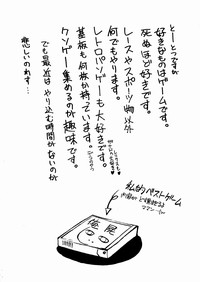 とーとつですが
好きなものはゲームです。
死ぬほど好きです。
レースやスポーツ物以外
何でもやります。
レトロパソゲーも大好きです。
基板も何枚か持っています。
クソゲー集めるのが趣味です。
でも最近はやり込む時間がないのが
悲しいのれす…
私的ベストゲーム
俺屍